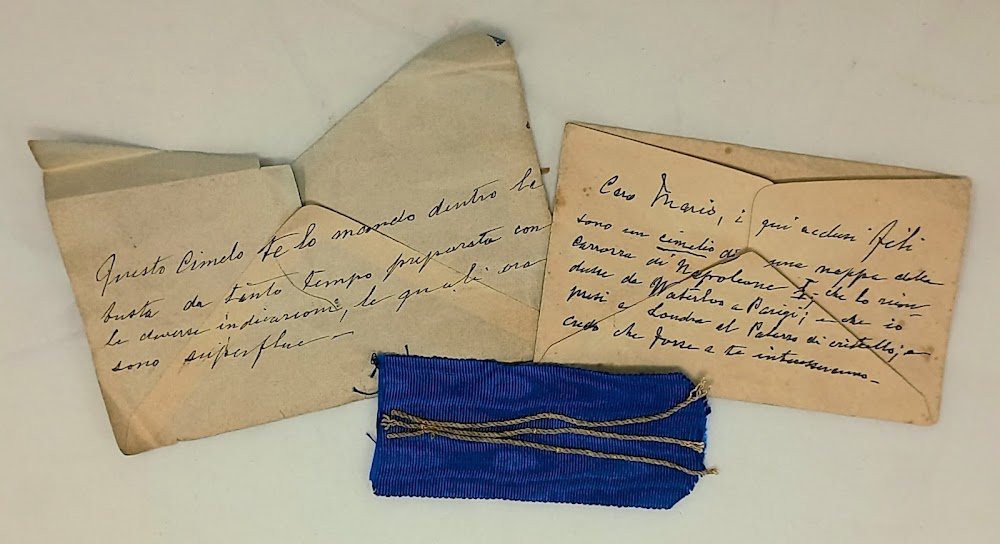 Questo Cimelo te lo mando dentro la
busta da tanto tempo preparata con
le diverse indicazioni, le quali ora
sono superflue —
Caro Mario, i qui acclusi fili
sono un cimelio di una nappa della
carrozza di Napoleone I, che lo ricon-
dusse da Waterloo a Parigi; e che io
presi a Londra al Palazzo di cristallo; e
credo che forse a te interesseranno —